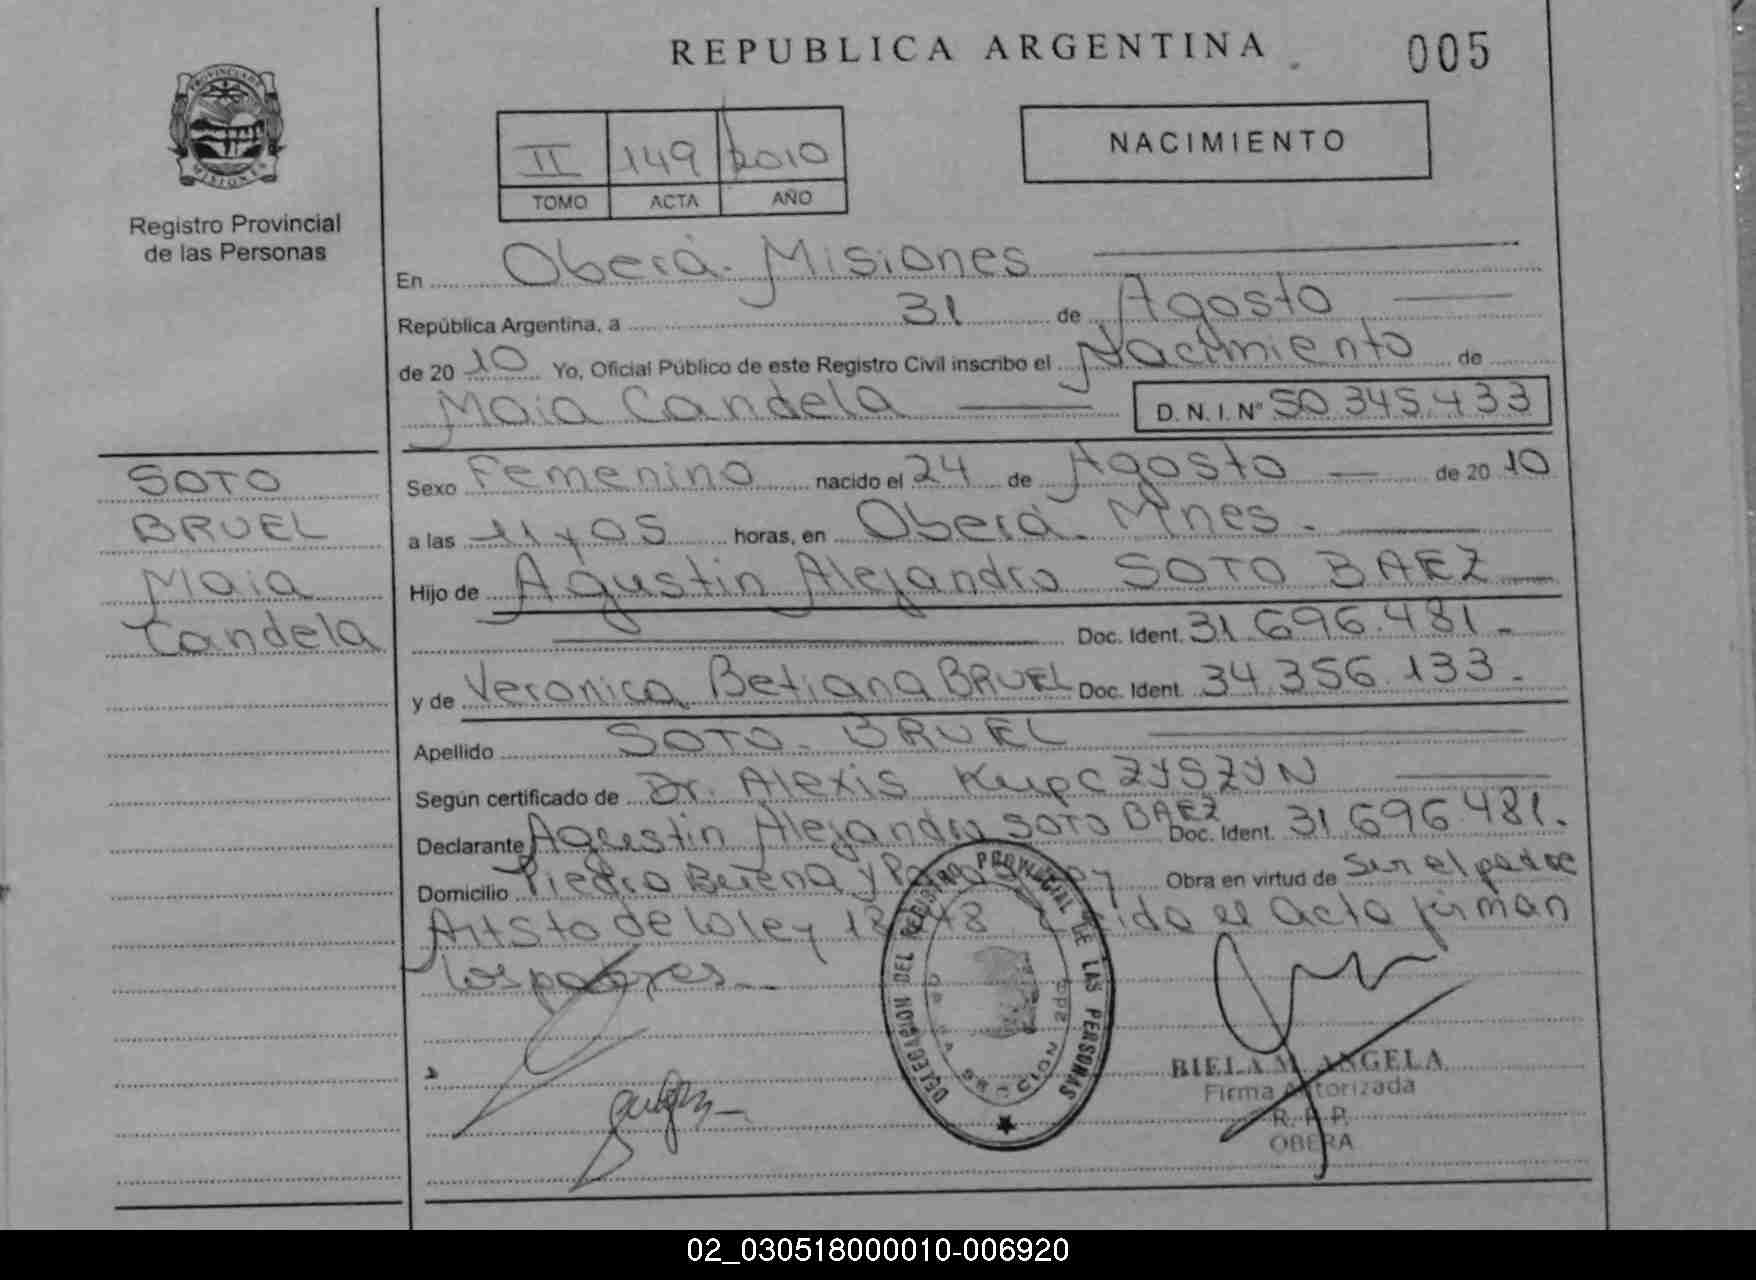 REPUBLICA ARGENTINA
005
PROVINCIA DE MISIONES
Registro Provincial
de las Personas
II 149 2010
TOMO ACTA AÑO
NACIMIENTO
En Oberá. Misiones
República Argentina, a 31 de Agosto
de 2010 Yo, Oficial Público de este Registro Civil inscribo el Nacimiento de
Maia Candela D. N. I. Nº 50.345.433
SOTO
BRUEL
Maia
Candela
Sexo Femenino nacido el 24 de Agosto de 2010
a las 11 y 05 horas, en Oberá. Mnes.
Hijo de Agustin Alejandro SOTO BAEZ
Doc. Ident. 31.696.481.-
y de Veronica Betiana BRUEL Doc. Ident. 34.356.133.-
Apellido SOTO. BRUEL
Según certificado de Dr. Alexis KupCZYSZYN
Declarante Agustin Alejandro SOTO BAEZ Doc. Ident. 31.696.481.
Domicilio Piedra Buena y Obra en virtud de ser el padre
Art 5to de la ley el acta firman
los padres
DELEGACION DEL REGISTRO PROVINCIAL DE LAS PERSONAS
OBERA SECCION 2da
BIELA M. ANGELA
Firma Autorizada
R. P. P.
OBERA
02_030518000010-006920